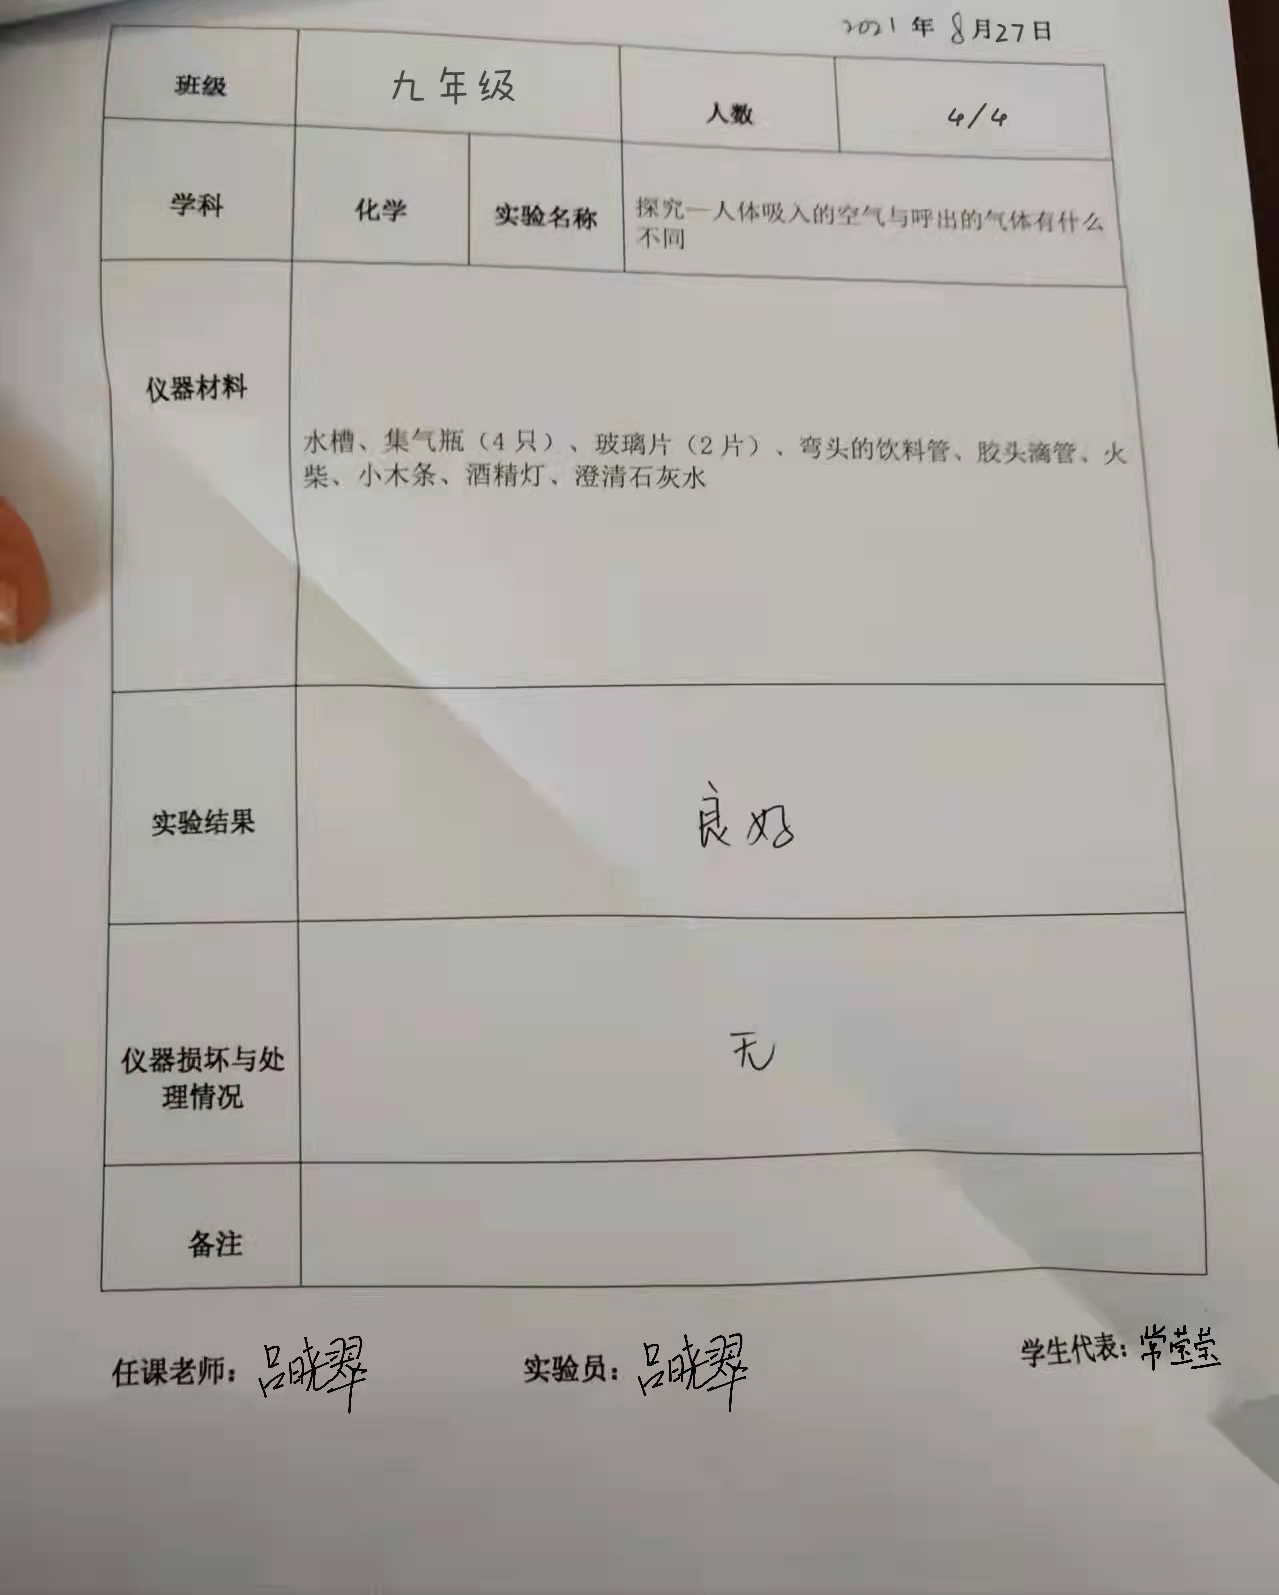 2021年8月27日
班级 九年级 人数 4/4
学科 化学 实验名称 探究—人体吸入的空气与呼出的气体有什么
不同
仪器材料
水槽、集气瓶（4只）、玻璃片（2片）、弯头的饮料管、胶头滴管、火
柴、小木条、酒精灯、澄清石灰水
实验结果 良好
仪器损坏与处
理情况
无
备注
任课老师：吕晓翠 实验员：吕晓翠 学生代表：常莹莹